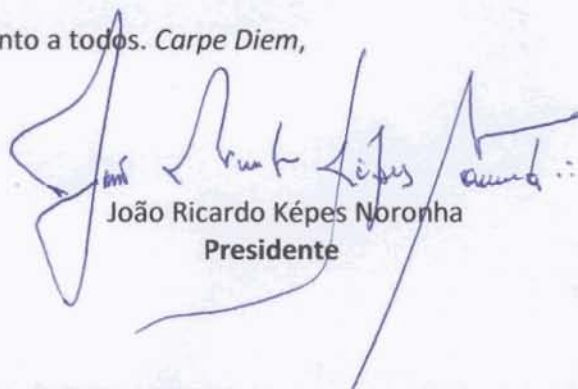 nto a todos. Carpe Diem,
João Ricardo Képes Noronha
Presidente